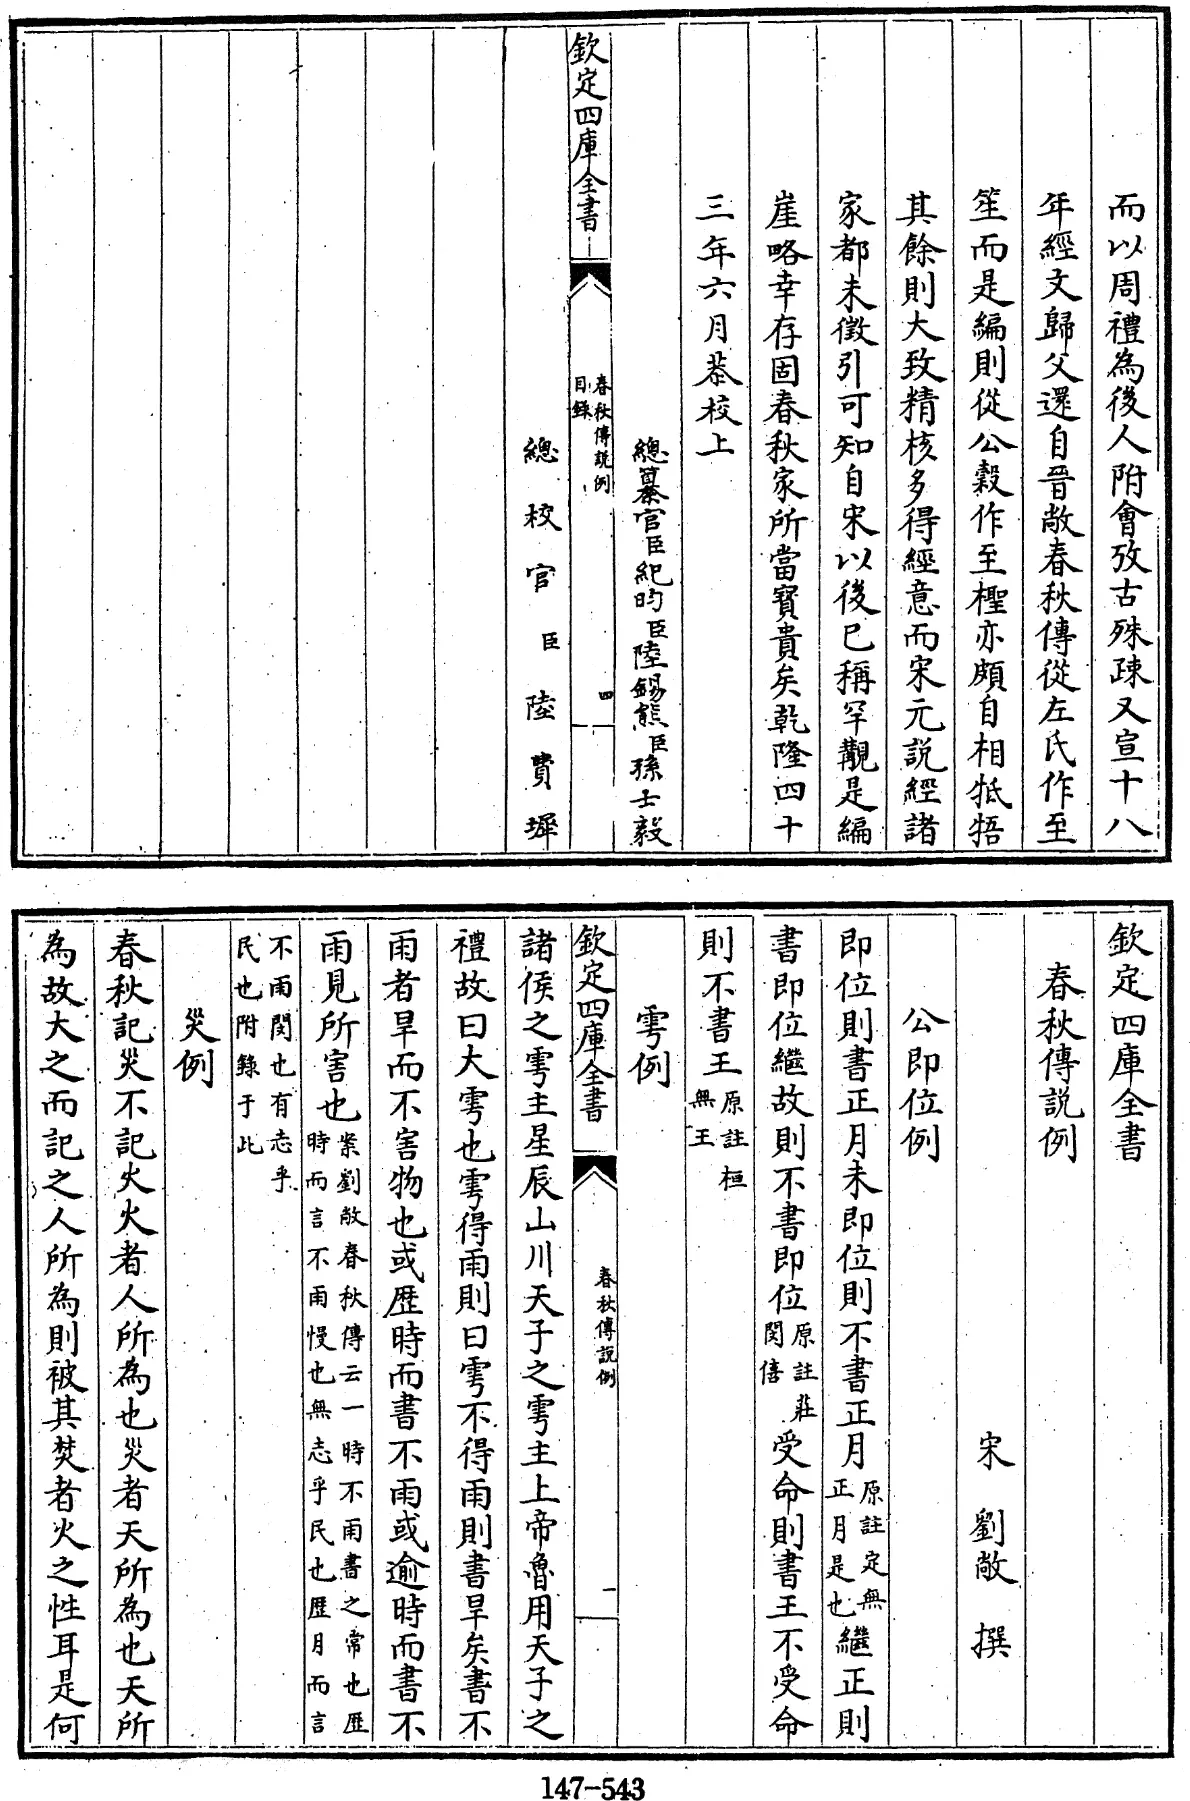 而以周禮為後人附會攷古殊疎又宣十八
年經文歸父還自晉敞春秋傳從左氏作至
笙而是編則從公穀作至檉亦頗自相牴牾
其餘則大致精核多得經意而宋元説經諸
家都未徵引可知自宋以後已稱罕覯是編
崖略幸存固春秋家所當寳貴矣乾隆四十
三年六月恭校上
總纂官臣紀昀臣陸錫熊臣孫士毅
欽定四庫全書
春秋傳説例
目錄
四
總校官臣陸費墀
欽定四庫全書
春秋傳説例
宋劉敞撰
公即位例
即位則書正月未即位則不書正月原註定無
正月是也繼正則
書即位繼故則不書即位原註莊
閔僖受命則書王不受命
則不書王原註桓
無王
雩例
欽定四庫全書
春秋傳説例
一
諸侯之雩主星辰山川天子之雩主上帝魯用天子之
禮故曰大雩也雩得雨則曰雩不得雨則書旱矣書不
雨者旱而不害物也或歴時而書不雨或逾時而書不
雨見所害也案劉敞春秋傳云一時不雨書之常也歴
時而言不雨慢也無志乎民也歴月而言
不雨閔也有志乎
民也附錄于此
災例
春秋記災不記火火者人所為也災者天所為也天所
為故大之而記之人所為則被其焚者火之性耳是何
147-543